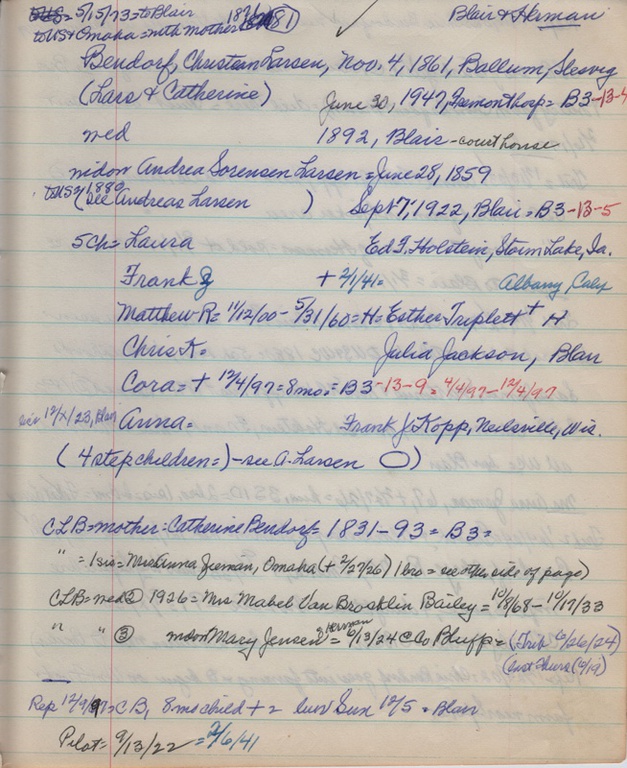 to US = 5/15/73 = to Blair 1876 (81) ✓ Blair & Herman
to US & Omaha = with mother
Bendorf, Christian Larsen, Nov. 4, 1861, Ballum, Slesvig
(Lars & Catherine) June 30, 1947, Fremonthosp = B3-13-4
med 1892, Blair - courthouse
widow Andrea Sorensen Larsen = June 28, 1859
to US = 1880 (see Andreas Larsen ) Sept 7, 1922, Blair = B3-13-5
5 ch = Laura Ed F. Holstein, Storm Lake, Ia.
Frank + 2/1/41 = Albany, Calif
Matthew R = 11/12/00 - 5/31/60 = H = Esther Triplett + H
Chris K = Julia Jackson, Blair
Cora = + 12/4/97 = 8 mo. = B3-13-9 = 4/4/97 - 12/4/97
12/x/23, Blair Anna = Frank J. Kopp, Neilsville, Wis.
( 4 stepchildren = ) - see A. Larsen
CLB = mother: Catherine Bendorf = 1831-93 = B3 =
" = 1 sis = Mrs Anna Omaha (+ 2/27/26) 1 bro = see other side of page)
CLB = med ② 1926 = Mrs Mabel Van Brocklin Bailey = 10/8/68 - 10/17/33
" " ③ widow Mary Jensen @ Herman = 6/13/24 @ Co Bluffs = (Trib 6/26/24)
(6/19)
Rep 12/9/97 = CB, 8 mo child + = bur Sun 12/5 = Blair
Pilot = 9/13/22 = 2/6/41